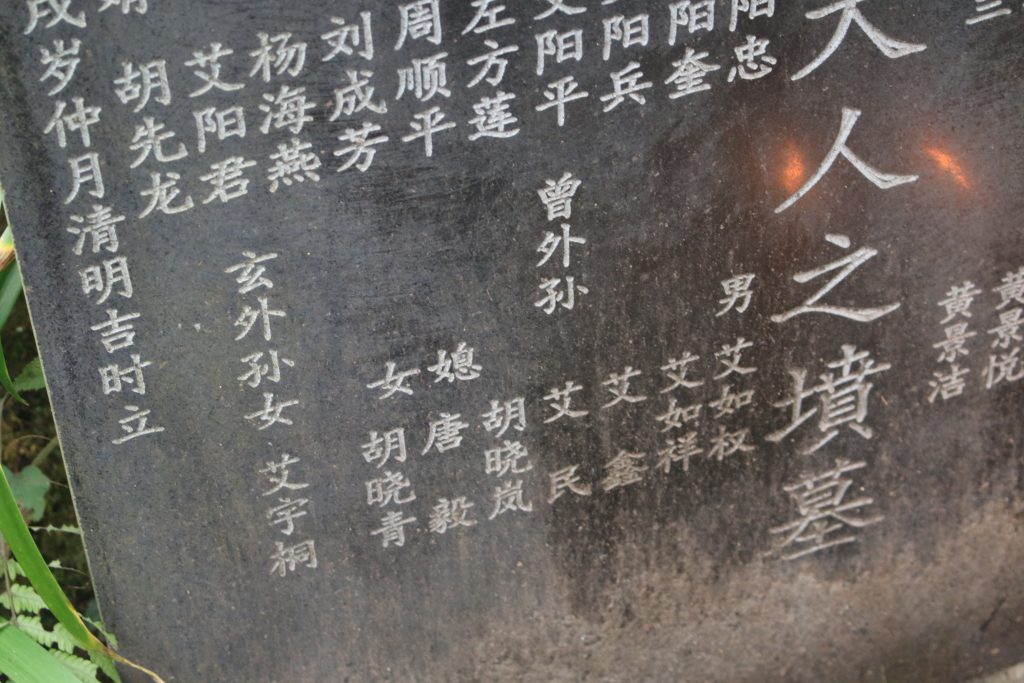 黄景悦
黄景洁
大人之墳墓
阳忠 男 艾如权
阳奎 艾如祥
阳兵 艾鑫
艾阳平 曾外孙 艾民
左方莲 胡晓岚
周顺平 媳 唐毅
刘成芳 女 胡晓青
杨海燕
艾阳君 玄外孙女 艾宇桐
胡先龙
戌岁仲月清明吉时立